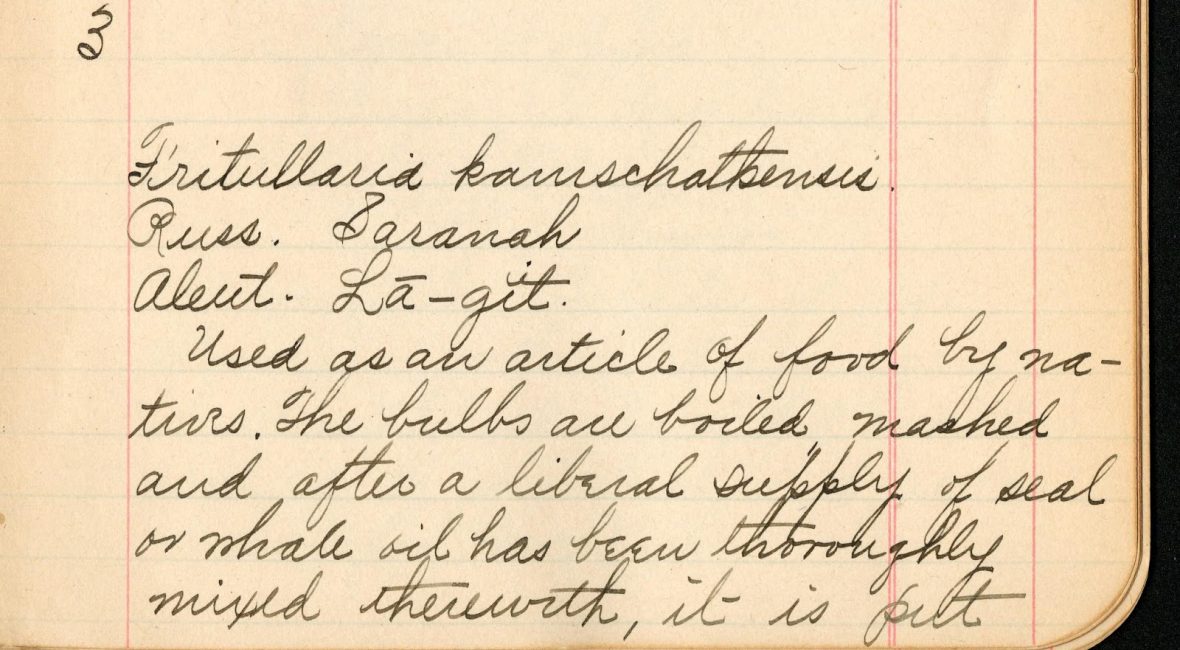 3
Fritullaria kamschatkensis.
Russ. Saranah
Aleut. Lā-git.
Used as an article of food by na-
tives. The bulbs are boiled, mashed
and after a liberal supply of seal
or whale oil has been thoroughly
mixed therewith, it is put